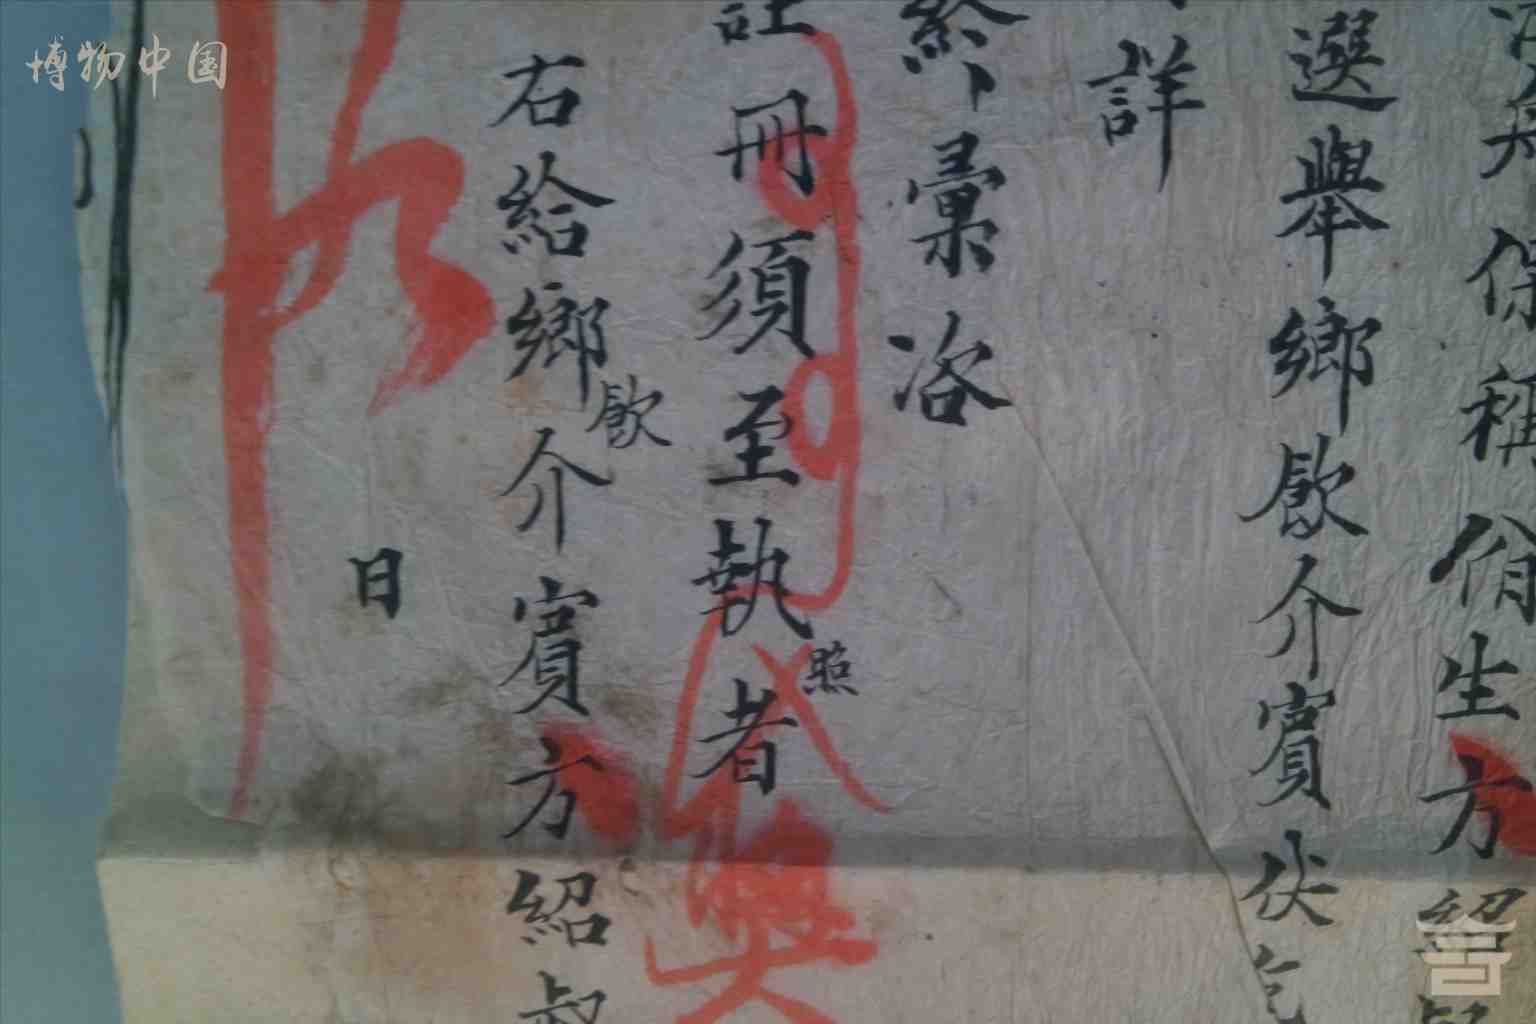 保稱脩生方紹
選舉鄉飲介賓伏乞
詳
給彙咨
註冊須至執照者
右給鄉飲介賓方紹
日
博物中国